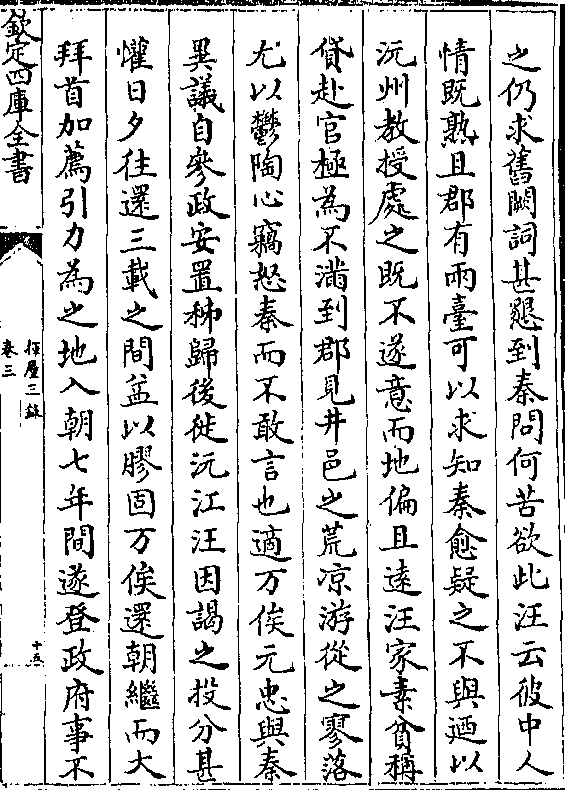 之仍求舊闕詞甚懇到秦問何苦欲此汪云彼中人
情既熟且郡有兩臺可以求知秦愈疑之不與廼以
沅州教授處之既不遂意而地偏且遠汪家素貧稱
貸赴官極為不滿到郡見井邑之荒凉游從之寥落
尤以鬱陶心竊怒秦而不敢言也適万俟元忠與秦
異議自參政安置秭歸後徙沅江汪因謁之投分甚
懽日夕往還三載之間益以膠固万俟還朝繼而大
拜首加薦引力為之地入朝七年間遂登政府事不
欽定四庫全書
揮麈三録
卷三
十五